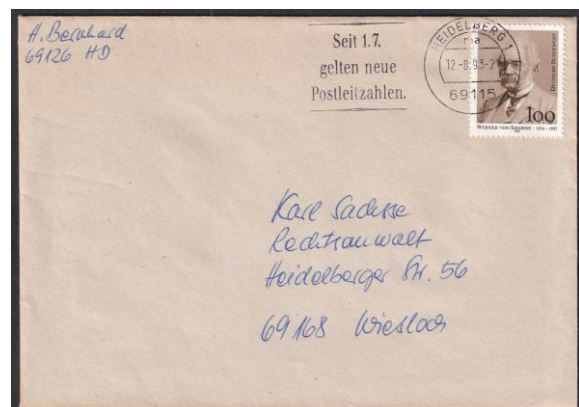 H. Bernhard
69126 HD
Seit 1.7.
gelten neue
Postleitzahlen.
HEIDELBERG 1
ma
12.-8.93-21
69115
DEUTSCHE BUNDESPOST
100
WERNER VON SIEMENS · 1816 - 1892
Karl Sachsse
Rechtsanwalt
Heidelberger Str. 56
69168 Wiesloch